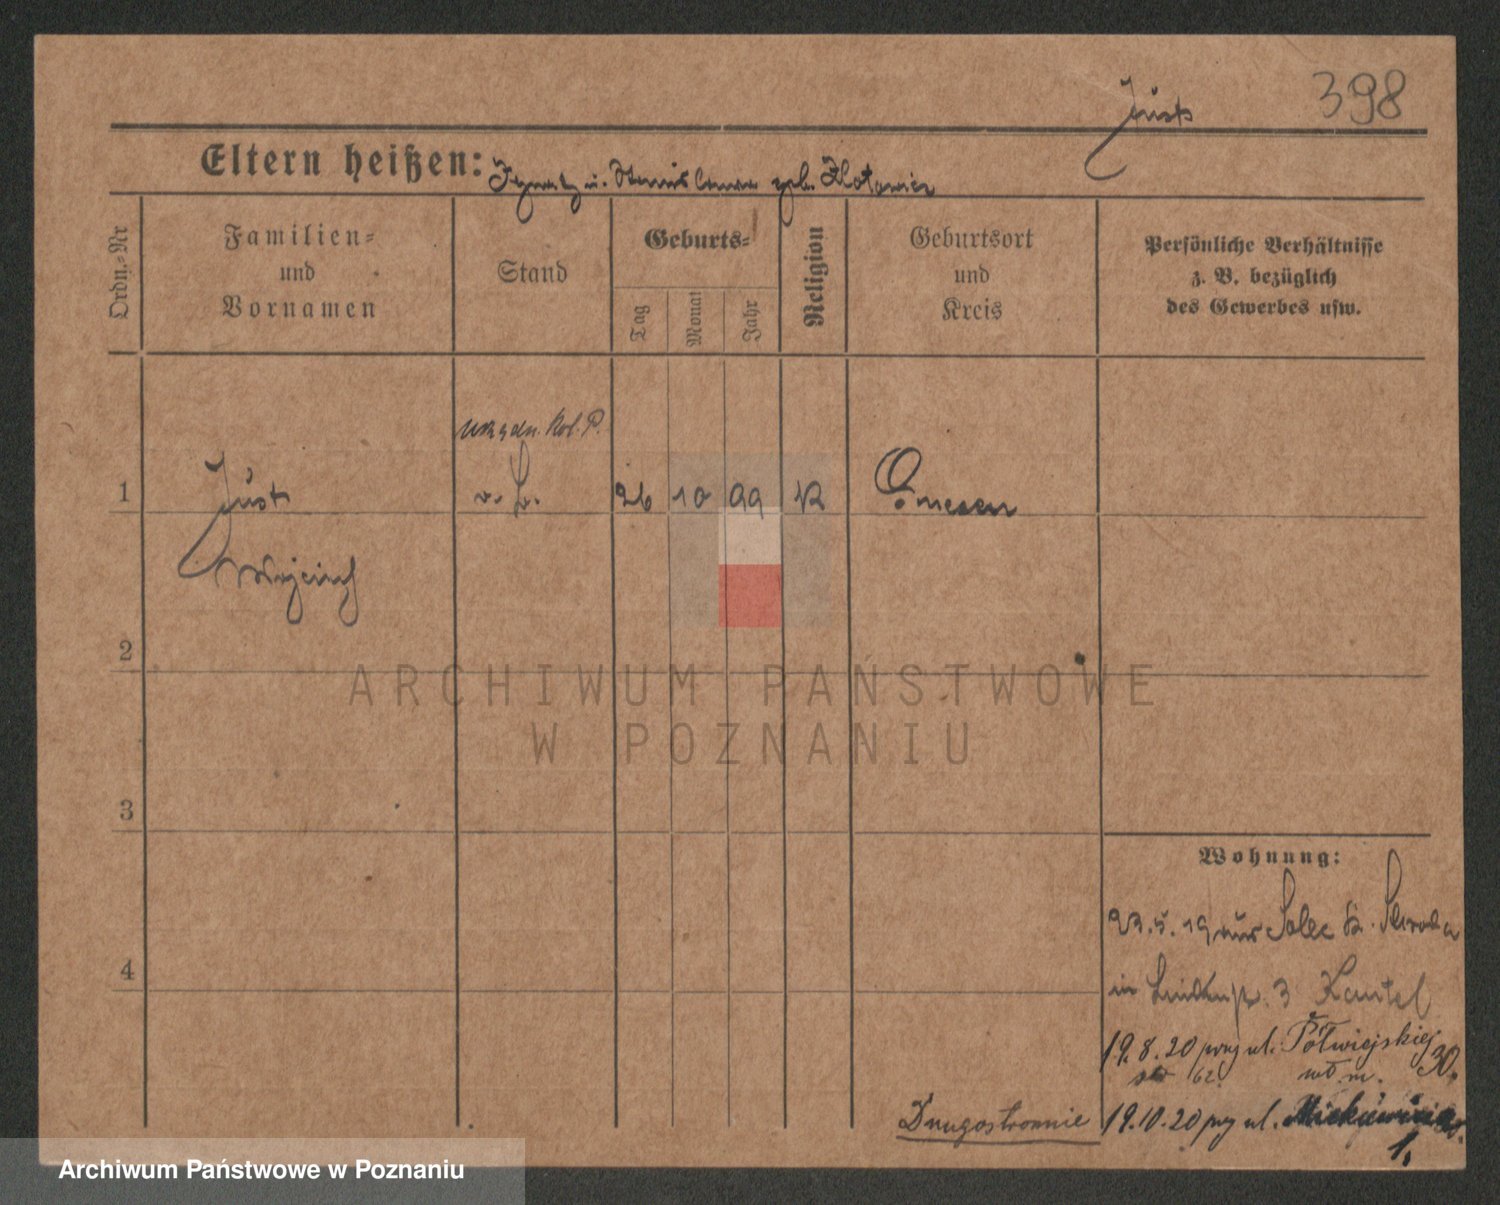 398
Just
Eltern heißen: Ignatz u. Stanislawa geb. Zlotowicz
Ordn.-Nr
Familien-
und
Vornamen
Stand
Geburts-
Tag
Monat
Jahr
Religion
Geburtsort
und
Kreis
Persönliche Verhältnisse
z. B. bezüglich
des Gewerbes usw.
1
Just
Wojciech
urzędn. Kol. P.
v. L.
26 10 99 K Gnesen
2
3
4
Wohnung:
23.5.19 aus Solec Kr. Schroda
in 3 Kantel
19.8.20 przy ul. Półwiejskiej 30.
62. wł. m.
Drugostronnie
19.10.20 przy ul. Mickiewicza
1.
ARCHIWUM PAŃSTWOWE
W POZNANIU
Archiwum Państwowe w Poznaniu